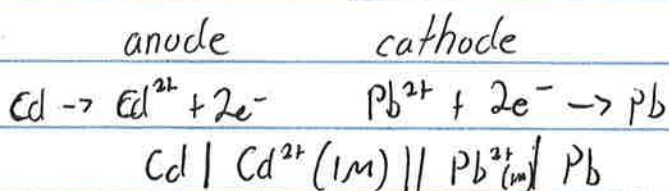 anode cathode
Cd -> Cd²⁺ + 2e⁻ Pb²⁺ + 2e⁻ -> Pb
Cd | Cd²⁺ (1M) || Pb²⁺(1M) | Pb